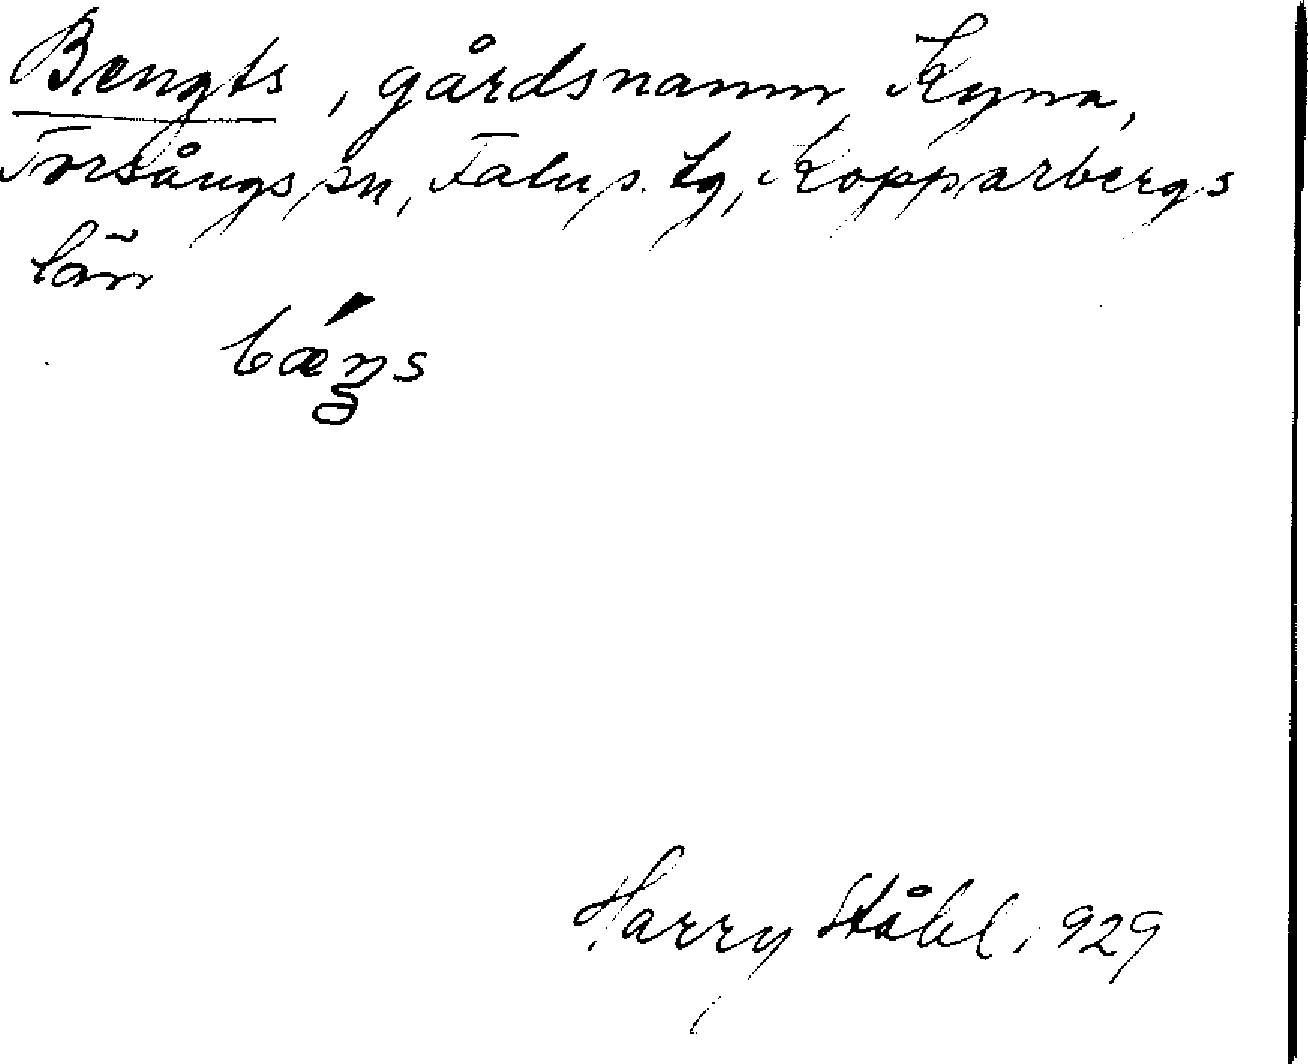 Bengts, gårdsnamn Kyna,
Torsångs sn, Falu s. tg, Kopparbergs
län
bǽŋs
Harry Ståhl, 1929